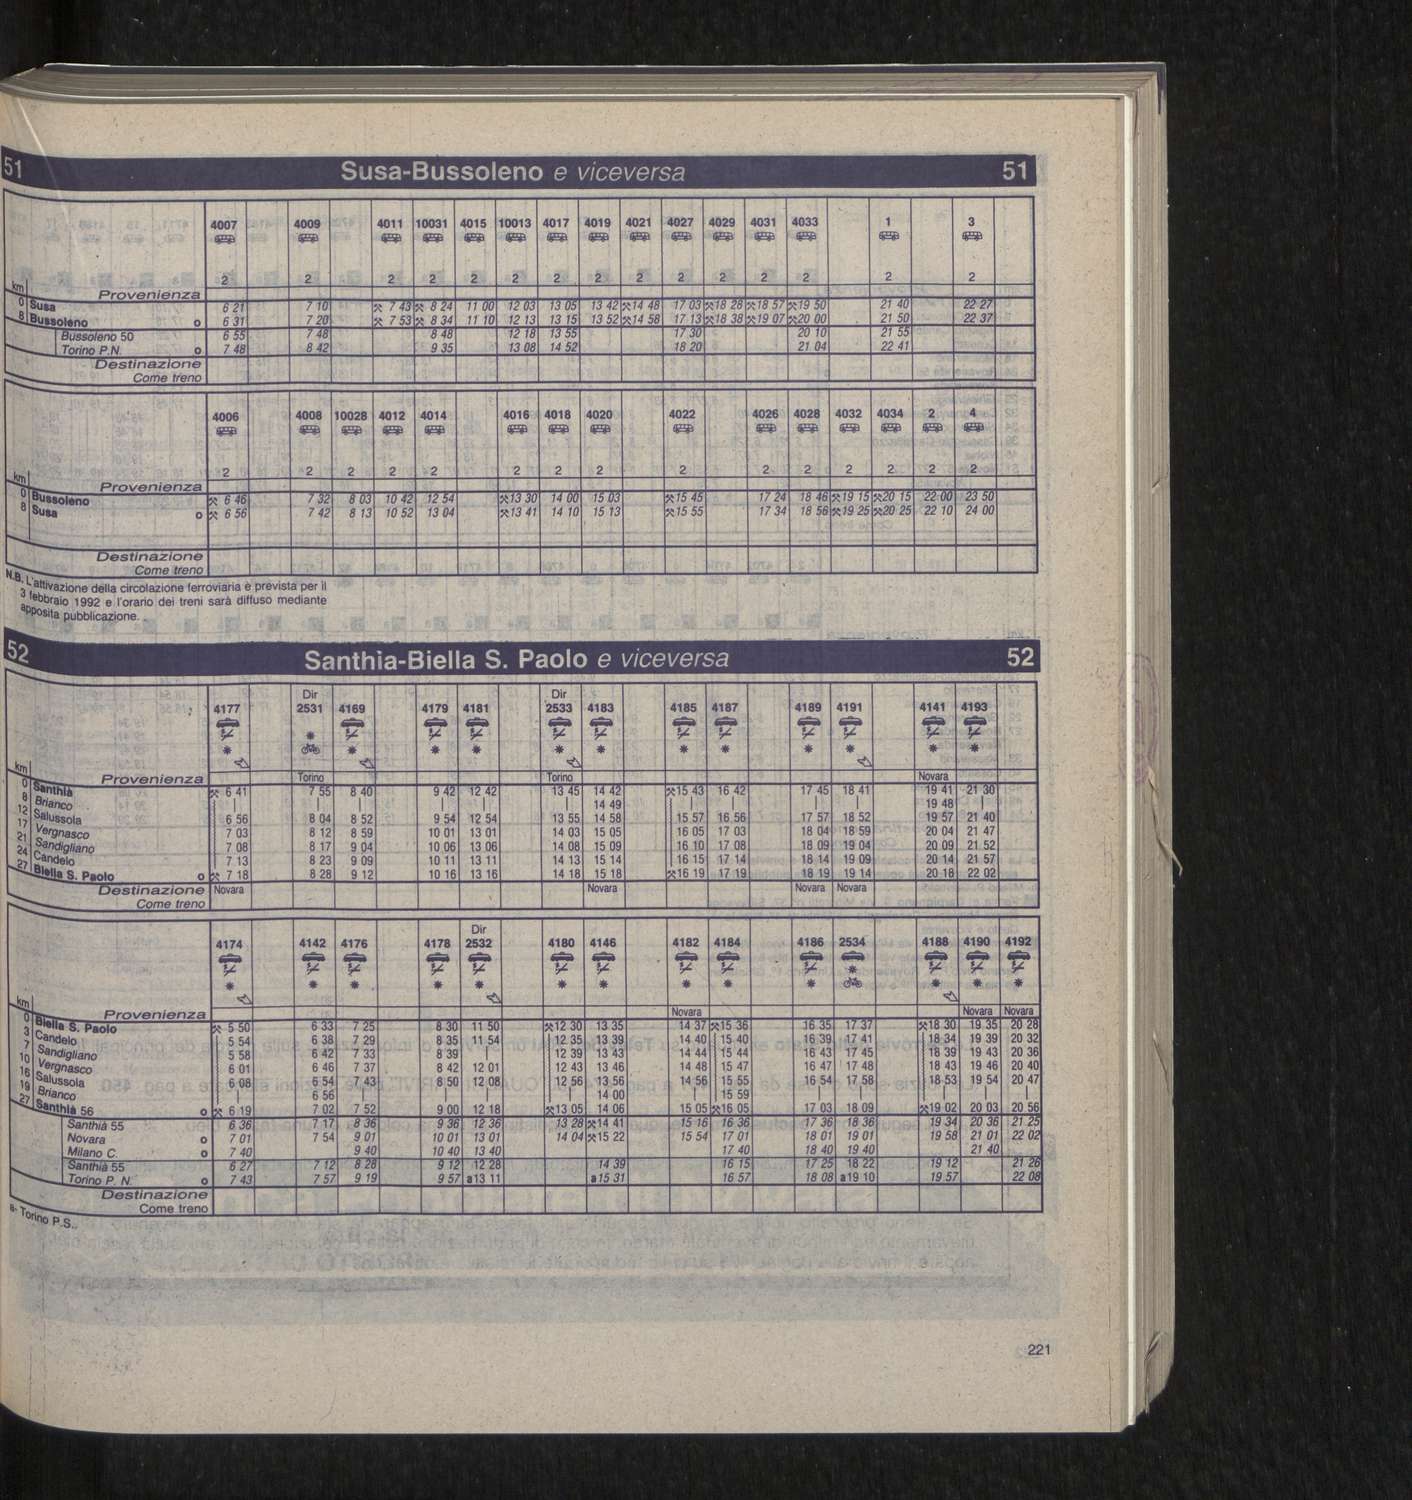 51 Susa-Bussoleno e viceversa 51
4007 4009 4011 10031 4015 10013 4017 4019 4021 4027 4029 4031 4033 1 3
2 2 2 2 2 2 2 2 2 2 2 2 2 2 2
km Provenienza
0 Susa 6 21 7 10 ⚒ 7 43 ⚒ 8 24 11 00 12 03 13 05 13 42 ⚒14 48 17 03 ⚒18 28 ⚒18 57 ⚒19 50 21 40 22 27
8 Bussoleno o 6 31 7 20 ⚒ 7 53 ⚒ 8 34 11 10 12 13 13 15 13 52 ⚒14 58 17 13 ⚒18 38 ⚒19 07 ⚒20 00 21 50 22 37
Bussoleno 50 6 55 7 48 8 48 12 18 13 55 17 30 20 10 21 55
Torino P.N. o 7 48 8 42 9 35 13 08 14 52 18 20 21 04 22 41
Destinazione
Come treno
4006 4008 10028 4012 4014 4016 4018 4020 4022 4026 4028 4032 4034 2 4
2 2 2 2 2 2 2 2 2 2 2 2 2 2 2
km Provenienza
0 Bussoleno ⚒ 6 46 7 32 8 03 10 42 12 54 ⚒13 30 14 00 15 03 ⚒15 45 17 24 18 46 ⚒19 15 ⚒20 15 22 00 23 50
8 Susa o ⚒ 6 56 7 42 8 13 10 52 13 04 ⚒13 41 14 10 15 13 ⚒15 55 17 34 18 56 ⚒19 25 ⚒20 25 22 10 24 00
Destinazione
Come treno
N.B. L'attivazione della circolazione ferroviaria è prevista per il
3 febbraio 1992 e l'orario dei treni sarà diffuso mediante
apposita pubblicazione.
52 Santhià-Biella S. Paolo e viceversa 52
Dir Dir
4177 2531 4169 4179 4181 2533 4183 4185 4187 4189 4191 4141 4193
km Provenienza Torino Torino Novara
0 Santhià ⚒ 6 41 7 55 8 40 9 42 12 42 13 45 14 42 ⚒15 43 16 42 17 45 18 41 19 41 21 30
8 Brianco | | | | | | 14 49 | | | | 19 48 |
12 Salussola 6 56 8 04 8 52 9 54 12 54 13 55 14 58 15 57 16 56 17 57 18 52 19 57 21 40
17 Vergnasco 7 03 8 12 8 59 10 01 13 01 14 03 15 05 16 05 17 03 18 04 18 59 20 04 21 47
21 Sandigliano 7 08 8 17 9 04 10 06 13 06 14 08 15 09 16 10 17 08 18 09 19 04 20 09 21 52
24 Candelo 7 13 8 23 9 09 10 11 13 11 14 13 15 14 16 15 17 14 18 14 19 09 20 14 21 57
27 Biella S. Paolo o ⚒ 7 18 8 28 9 12 10 16 13 16 14 18 15 18 ⚒16 19 17 19 18 19 19 14 20 18 22 02
Destinazione Novara Novara Novara Novara
Come treno
Dir
4174 4142 4176 4178 2532 4180 4146 4182 4184 4186 2534 4188 4190 4192
km Provenienza Novara Novara Novara
0 Biella S. Paolo ⚒ 5 50 6 33 7 25 8 30 11 50 ⚒12 30 13 35 14 37 ⚒15 36 16 35 17 37 ⚒18 30 19 35 20 28
3 Candelo 5 54 6 38 7 29 8 35 11 54 12 35 13 39 14 40 15 40 16 39 17 41 18 34 19 39 20 32
7 Sandigliano 5 58 6 42 7 33 8 39 | 12 39 13 43 14 44 15 44 16 43 17 45 18 39 19 43 20 36
10 Vergnasco 6 01 6 46 7 37 8 42 12 01 12 43 13 46 14 48 15 47 16 47 17 48 18 43 19 46 20 40
16 Salussola 6 08 6 54 7 43 8 50 12 08 12 56 13 56 14 56 15 55 16 54 17 58 18 53 19 54 20 47
19 Brianco | 6 56 | | | | 14 00 | 15 59 | | | | |
27 Santhià 56 o ⚒ 6 19 7 02 7 52 9 00 12 18 ⚒13 05 14 06 15 05 ⚒16 05 17 03 18 09 ⚒19 02 20 03 20 56
Santhià 55 6 36 7 17 8 36 9 36 12 36 13 28 ⚒14 41 15 16 16 36 17 36 18 36 19 34 20 36 21 25
Novara o 7 01 7 54 9 01 10 01 13 01 14 04 ⚒15 22 15 54 17 01 18 01 19 01 19 58 21 01 22 02
Milano C. o 7 40 9 40 10 40 13 40 17 40 18 40 19 40 21 40
Santhià 55 6 27 7 12 8 28 9 12 12 28 14 39 16 15 17 25 18 22 19 12 21 26
Torino P. N. o 7 43 7 57 9 19 9 57 a13 11 a15 31 16 57 18 08 a19 10 19 57 22 08
Destinazione
Come treno
a- Torino P.S..
221